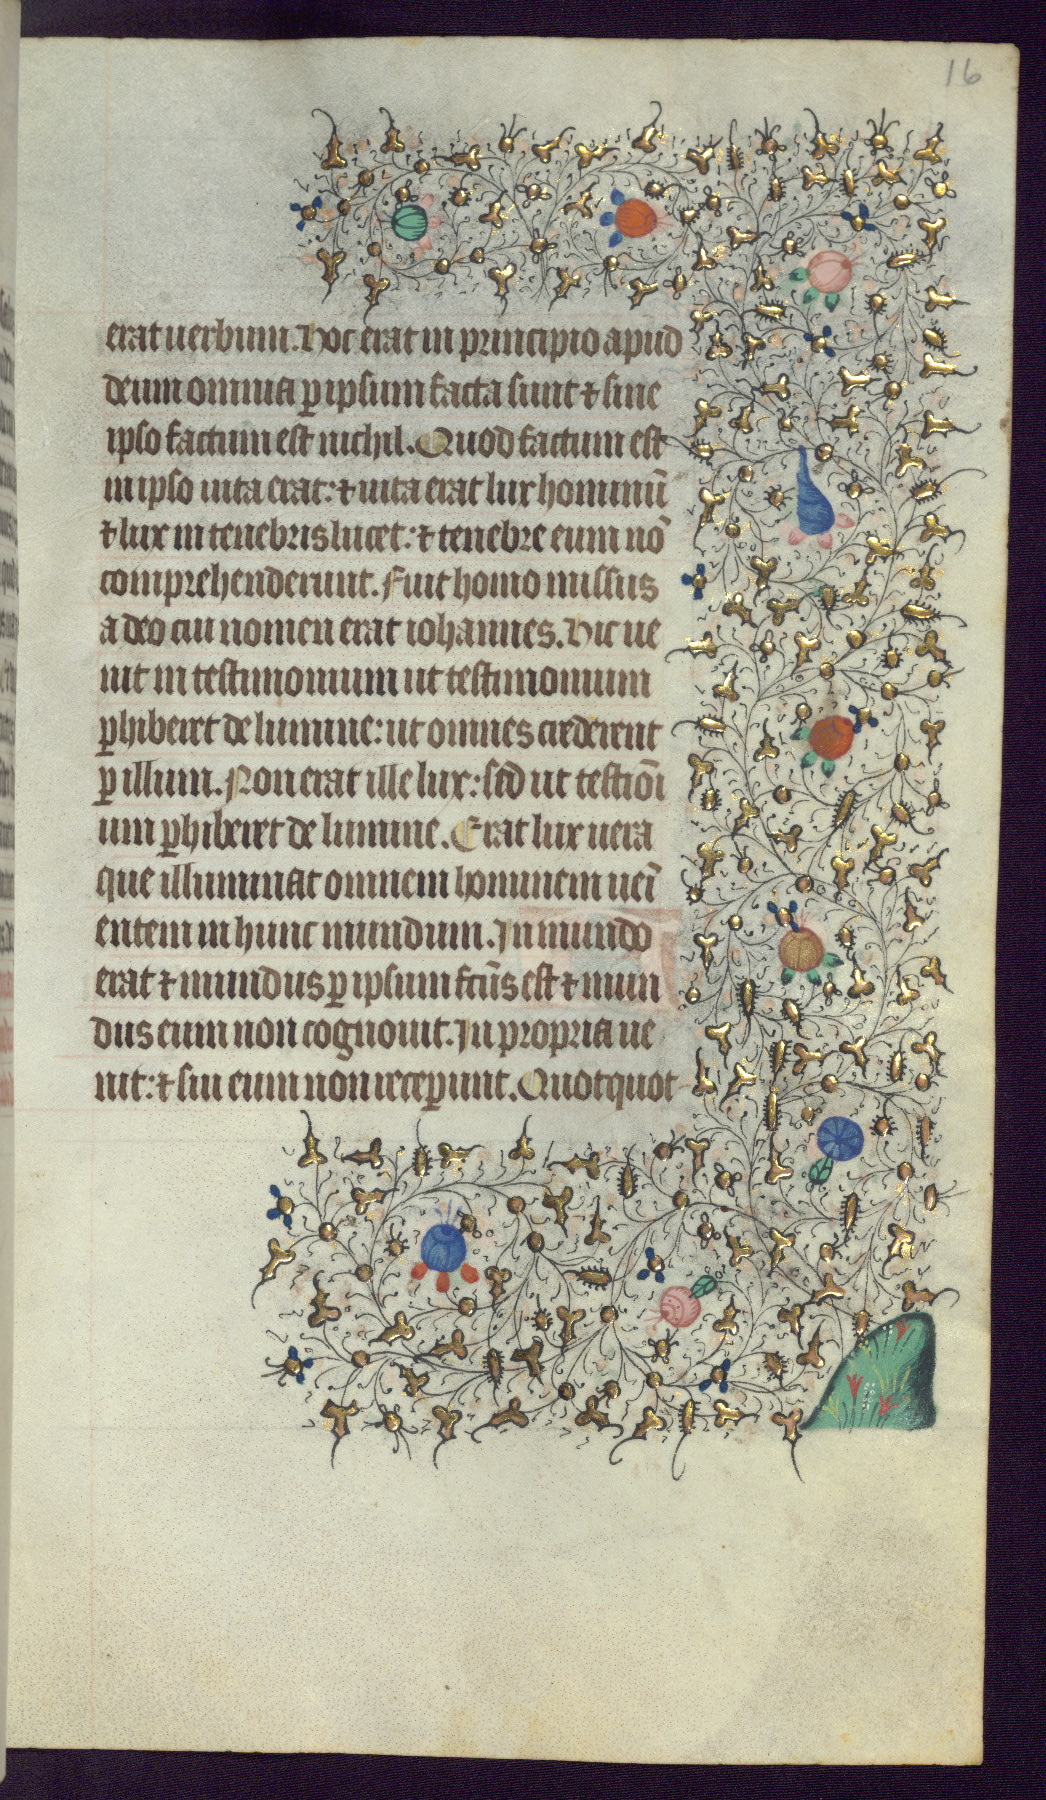 16
erat uerbum. Hoc erat in principio apud
deum omnia ꝑ ipsum facta sunt ⁊ sine
ipso factum est nichil. Quod factum est
in ipso uita erat: ⁊ uita erat lux hominū
⁊ lux in tenebris lucet: ⁊ tenebre eum nō
comprehenderunt. Fuit homo missus
a deo cui nomen erat iohannes. Hic ue
nit in testimonium ut testimonium
ꝑhiberet de lumine: ut omnes crederent
ꝑ illum. Non erat ille lux: sed ut testiōi
um ꝑhiberet de lumine. Erat lux uera
que illuminat omnem hominem ueī
entem in hunc mundum. In mundo
erat ⁊ mundus ꝑ ipsum fcūs est ⁊ mun
dus eum non cognouit. In propria ue
nit: ⁊ sui eum non receꝑunt. Quotquot